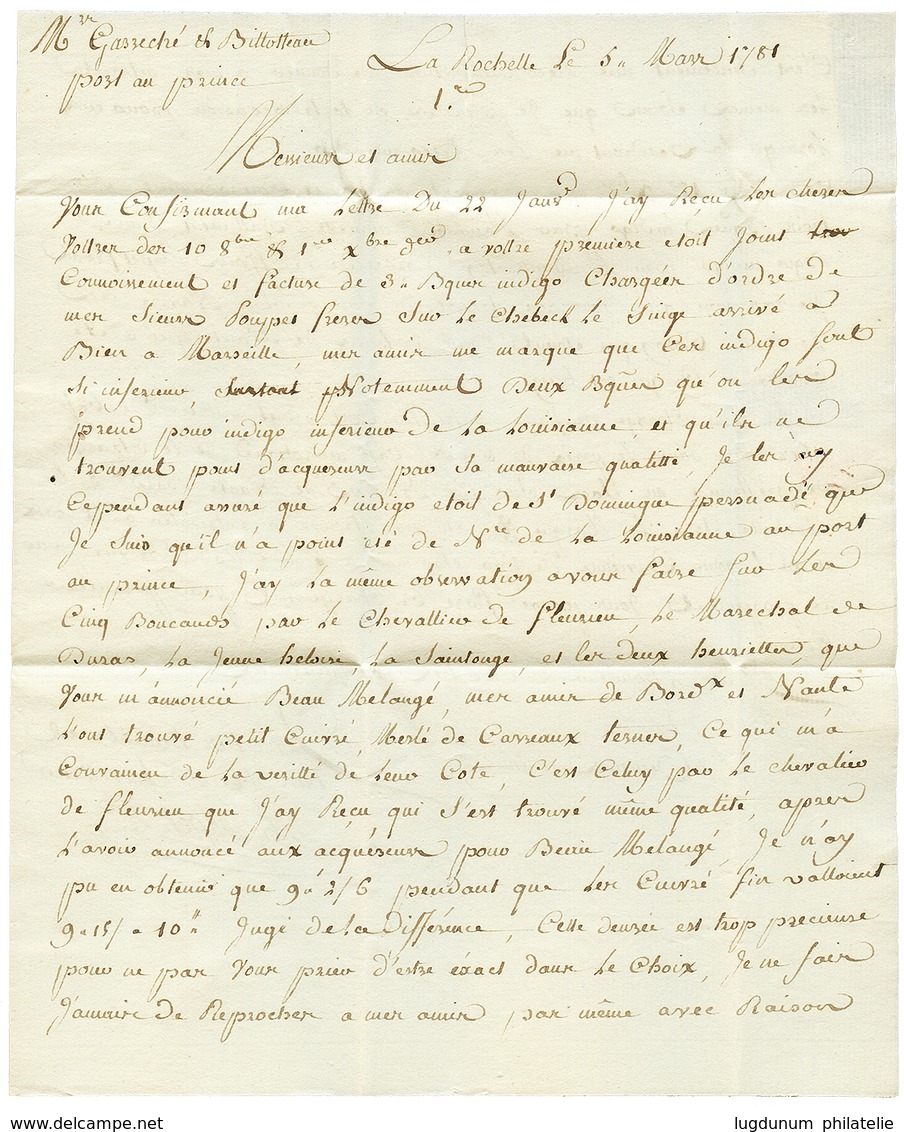 Mrs Garreché & Billotteau
port au prince
La Rochelle Le 5 Mars 1781
1.re
Messieurs et amis
Vous Confirmant ma Lettre Du 22 Janv.r J'ay Reçu Les cheres
Vottres des 10 8bre & 1er Xbre der. a vottre premiere etoit Joint
Connoissement et facture de 3 Bques indigo Chargées d'ordre de
mes Sieurs Poupet freres Sur Le Chebeck Le Singe arrivé a
Bien a Marseille, mes amis me marque que Ces indigo Sont
Si inferieur, Nottemment Deux Bques qu'on les
prend pour indigo inferieur de La Louisianne, et qu'ils ne
trouvent point d'acquereur par Sa mauvaise qualitté, Je les ay
Cependant assuré que L'indigo etoit de St Domingue persuadé que
Je Suis qu'il n'a point été de Nre de La Louisianne au port
au prince, J'ay La même observation a vous faire Sur Les
Cinq Boucauds par Le Chevallier de fleurieu, Le Marechal de
Duras, La Jeune heloise, La Saintonge, et les deux henriettes, que
Vous m'annoncié Beau Melangé, mes amis de Bordx et Nante
L'ont trouvé petit Cuivré, Meslé de Carreaux ternes, Ce qui m'a
Convaincu de La veritté de Leur Coté, C'est Celuy par Le chevalier
de fleurieu que J'ay Reçu qui S'est trouvé même qualité, apres
L'avoir annoncé aux acquéreurs pour Beau Mélangé, Je n'ay
pu en obtenir que 9# 2/6 pendant que Les Cuivré fin valloient
9# 15/ a 10# Jugé de La Différence, Cette denrée est trop precieuse
pour ne pas Vous prier d'estre éxact dans Le Choix, Je ne fais
Jamais de Reproches a mes amis pas même avec Raison
delcampe.net
lugdunum philatelie